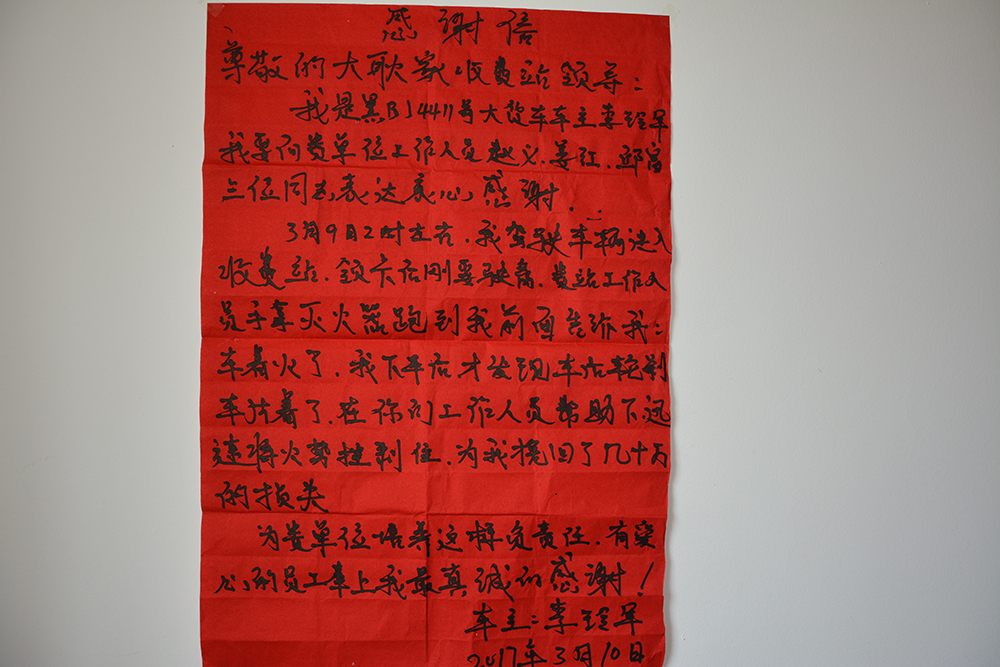 感谢信
尊敬的大耿家收费站领导:
我是黑BJ4411号大货车车主李
我要向贵单位工作人员赵义、姜红、邱富
三位同志表达衷心感谢.
3月9日2时左右,我驾驶车辆进入
收费站,领卡后刚要驶离,贵站工作人
员手拿灭火器跑到我前面告诉我:
车着火了,我下车后才发现车右轮刹
车片着了,在你们工作人员帮助下迅
速将火势控制住,为我挽回了几十万
的损失
为贵单位培养这样负责任,有爱
心的员工奉上我最真诚的感谢!
车主:李
2017年3月10日